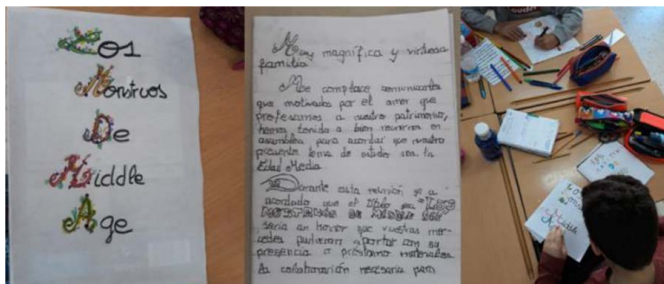 Los
Monstruos
De
Middle
Age
Muy magnífica y virtuosa
familia
Me complace comunicarles
que motivados por el amor que
profesamos a nuestro patrimonio,
hemos tenido a bien reunirnos en
asamblea para acordar que nuestro
presente tema de estudio sea la
Edad Media.
Durante esta reunión se a
acordado que el título sea "Los
sería un honor que vuestras mer-
cedes pudieran aportar con su
presencia o préstamo materiales
la colaboración necesaria para